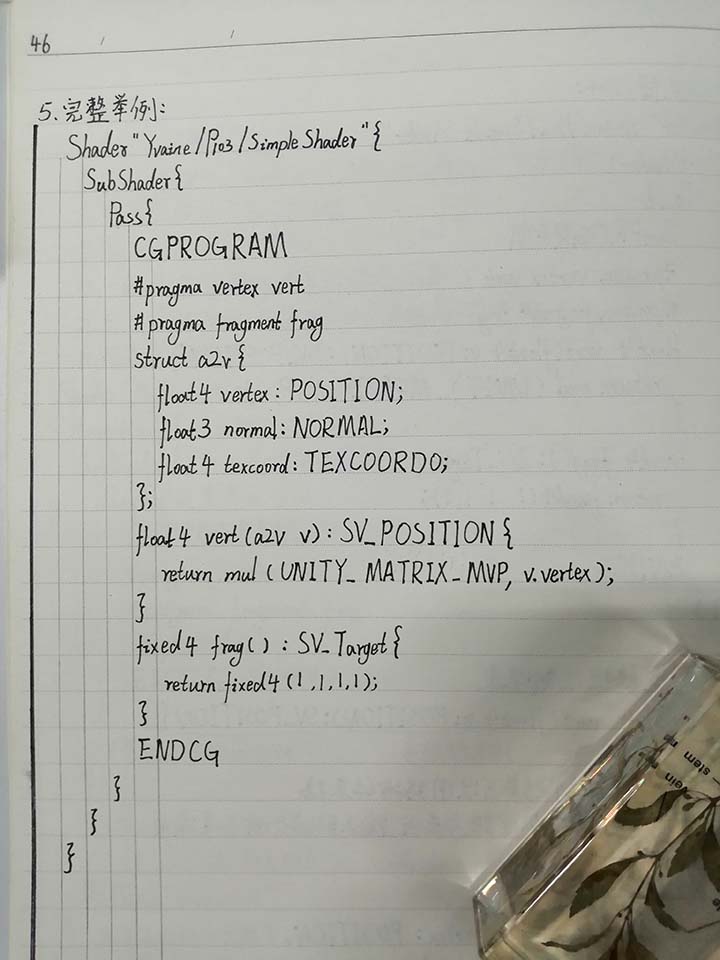 46
5.完整举例:
Shader"Yvaine/P103/SimpleShader"{
SubShader{
Pass{
CGPROGRAM
#pragma vertex vert
#pragma fragment frag
struct a2v{
float4 vertex:POSITION;
float3 normal:NORMAL;
float4 texcoord:TEXCOORD0;
};
float4 vert(a2v v):SV_POSITION{
return mul(UNITY_MATRIX_MVP, v.vertex);
}
fixed4 frag():SV_Target{
return fixed4(1,1,1,1);
}
ENDCG
}
}
}
stem
vein